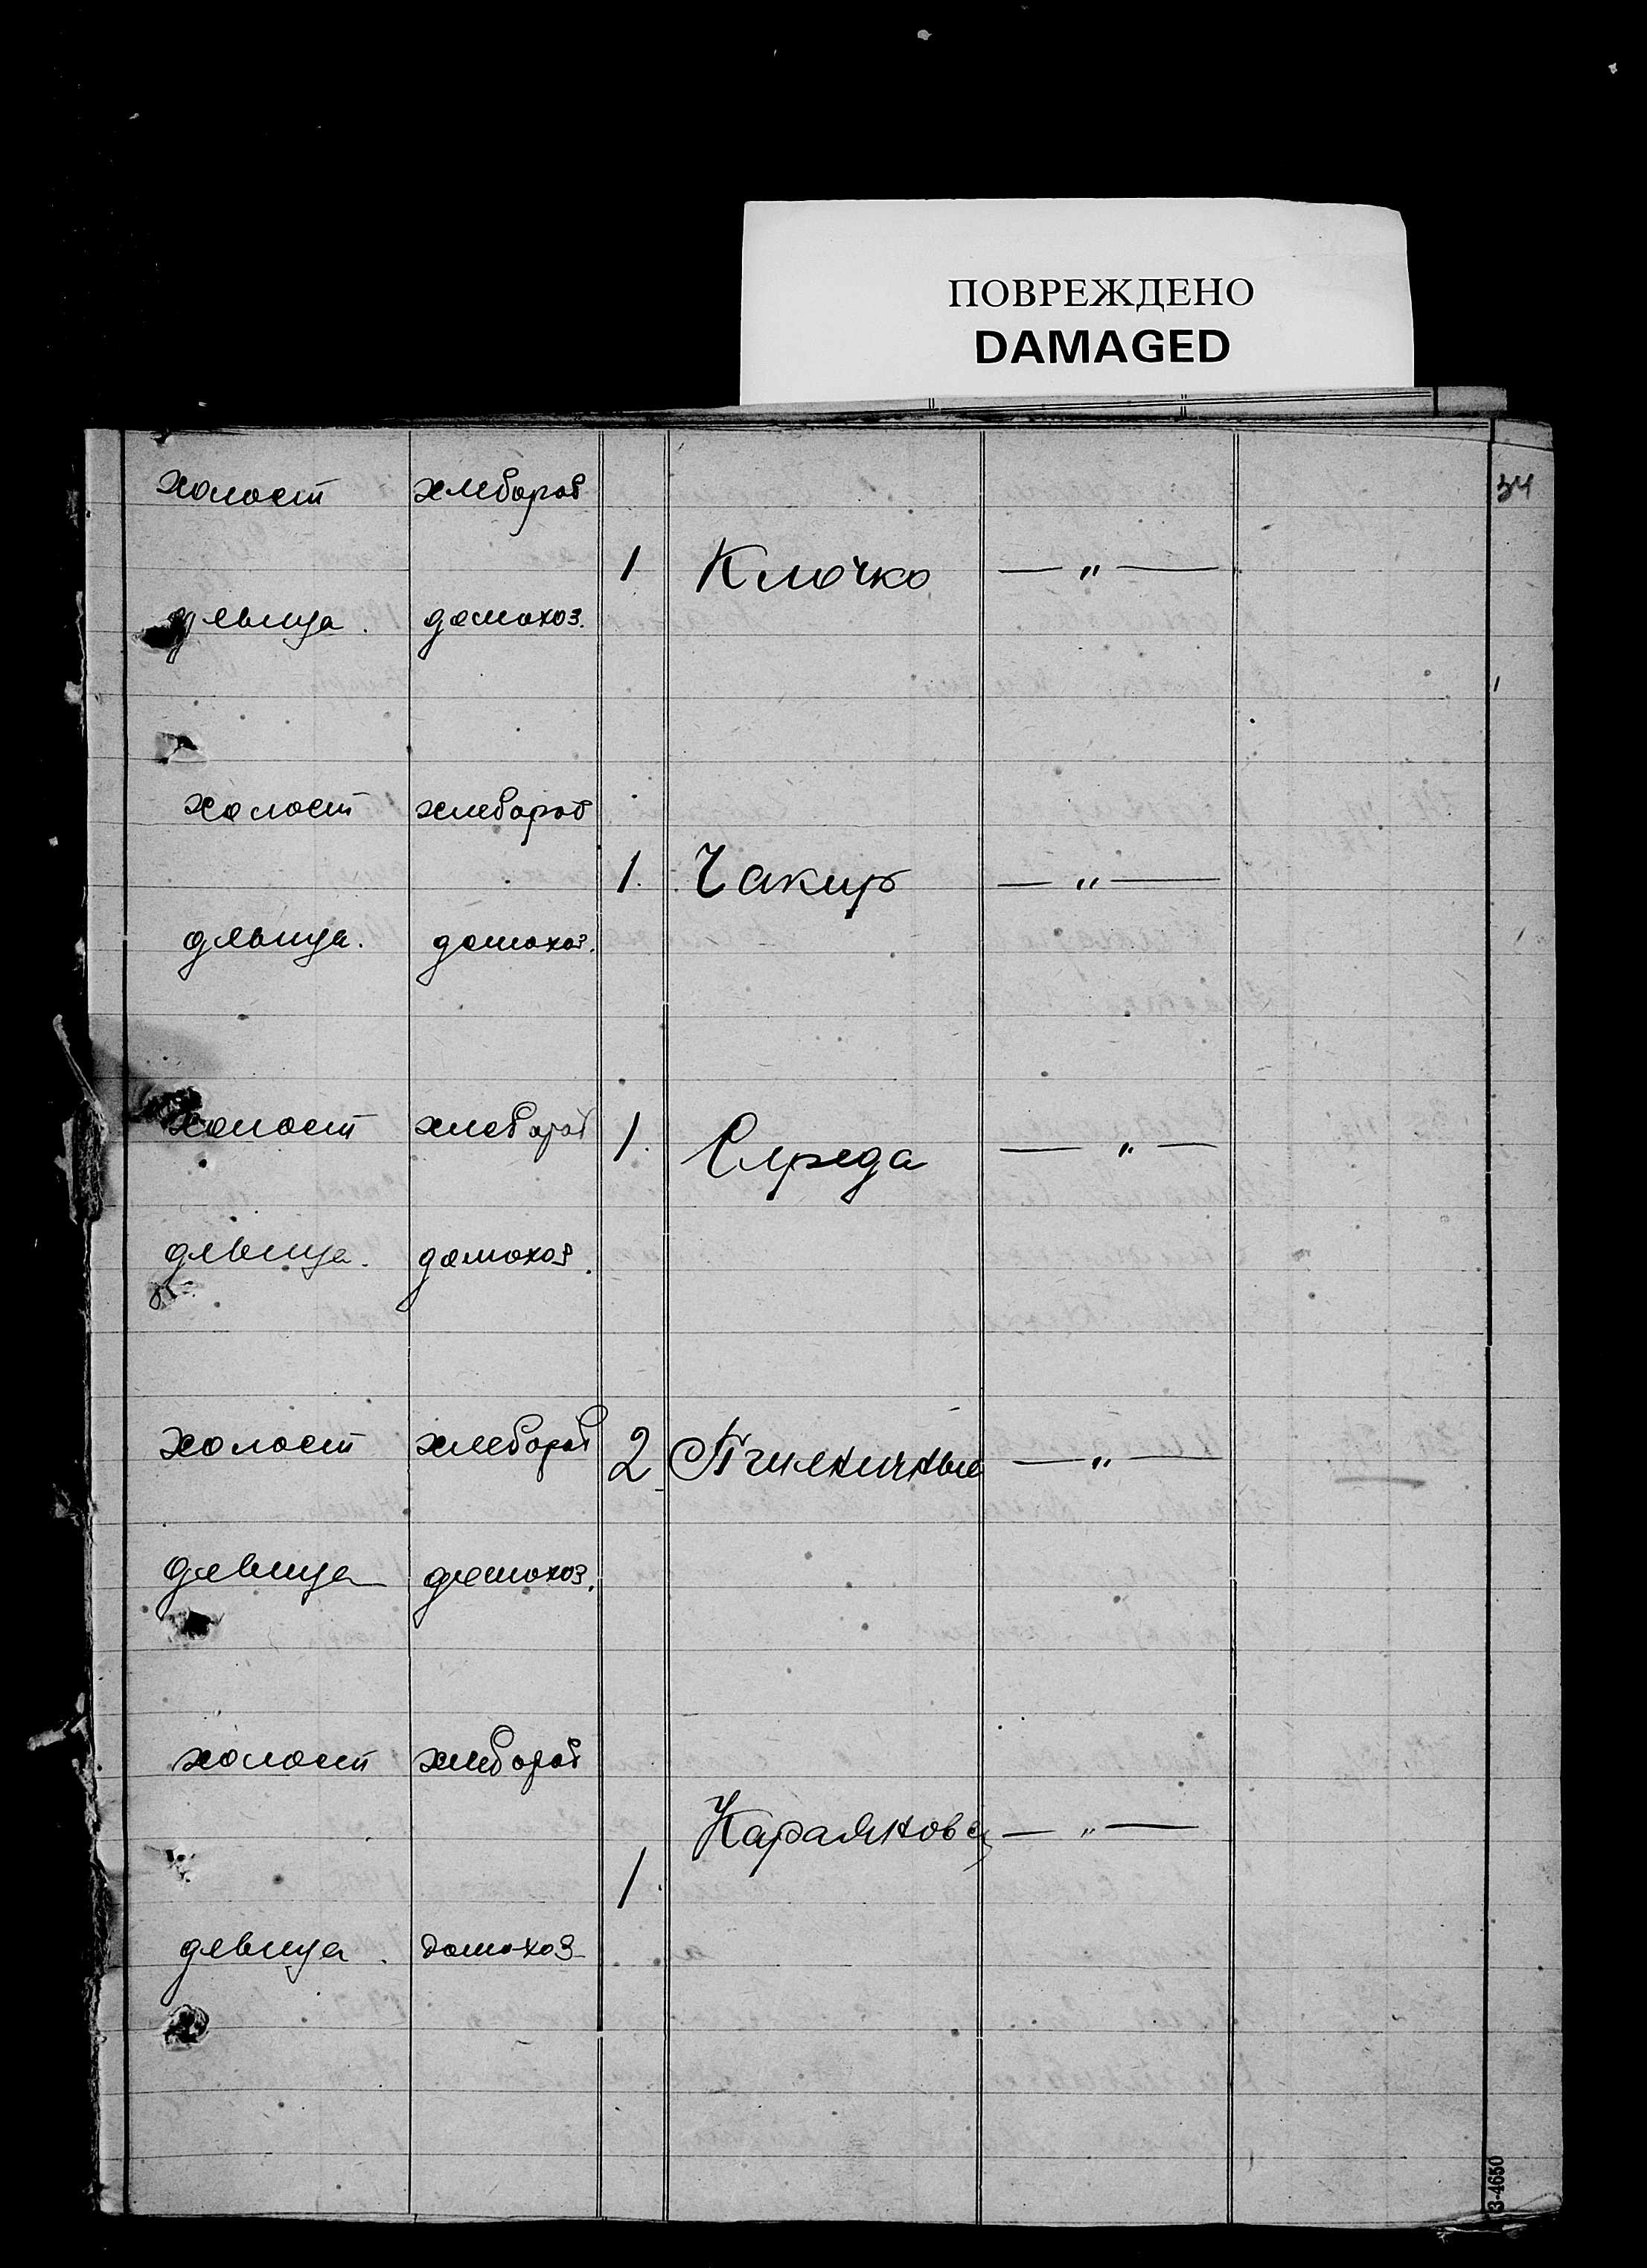 ПОВРЕЖДЕНО
DAMAGED
34
холост хлебороб
1 Клочко — „ —
девица. домохоз.
холост хлебороб
1. Чакир — „ —
девица. домохоз.
холост хлебороб 1. Середа — „ —
девица. домохоз.
холост хлебороб 2 — „ —
девица домохоз.
холост хлебороб
— „ —
1.
девица. домохоз
3-4650